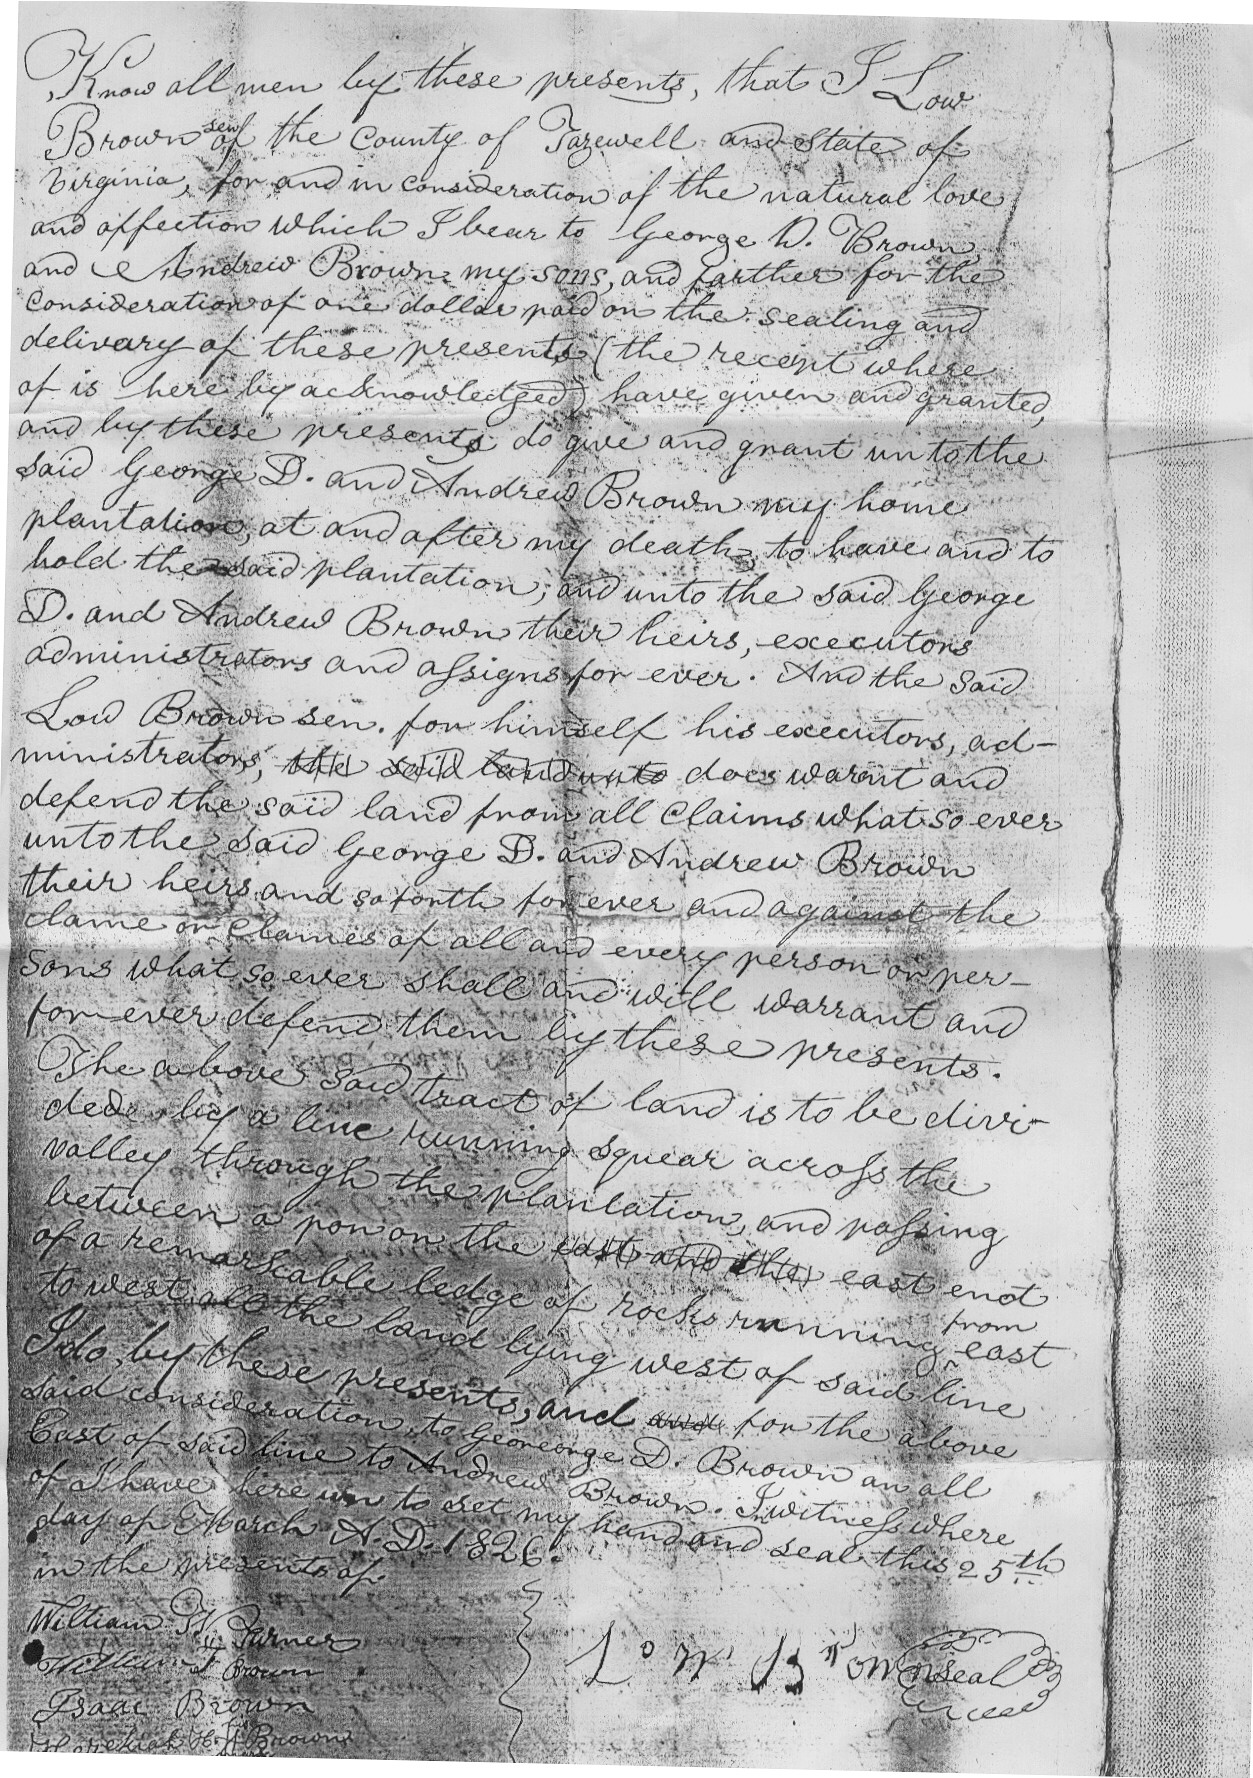 Know all men by these presents, that I Low
Brown sen of the County of Tazewell and State of
Virginia, for and in consideration of the natural love
and affection which I bear to George D. Brown
and Andrew Brown my sons, and farther for the
consideration of one dollar paid on the sealing and
delivary of these presents (the receipt where
of is here by acknowledged) have given and granted,
and by these presents do give and grant unto the
said George D. and Andrew Brown my home
plantation, at and after my death, to have and to
hold the said plantation, and unto the said George
D. and Andrew Brown their heirs, executors
administrators and assigns for ever. And the said
Low Brown sen. for himself his executors, ad-
ministrators, the said land unto does warnt and
defend the said land from all Claims what so ever
unto the said George D. and Andrew Brown
their heirs and so forth for ever and against the
clame or Clames of all and every person or per-
sons what so ever shall and will warrant and
for ever defend them by these presents.
The above said tract of land is to be divi-
ded by a line running squear across the
valley through the plantation, and passing
between a pon on the east and the east end
of a remarkable ledge of rocks running from east
to west all the land lying west of said line
I do, by these presents, and and for the above
said consideration, to Georeorge D. Brown an all
East of said line to Andrew Brown. In witness where
of I have here un to set my hand and seal this 25th
day of March A.D. 1826.
in the presents of
William Turner
William Brown
Isaac Brown
Hezekiah H. Brown
Low Brown Seal